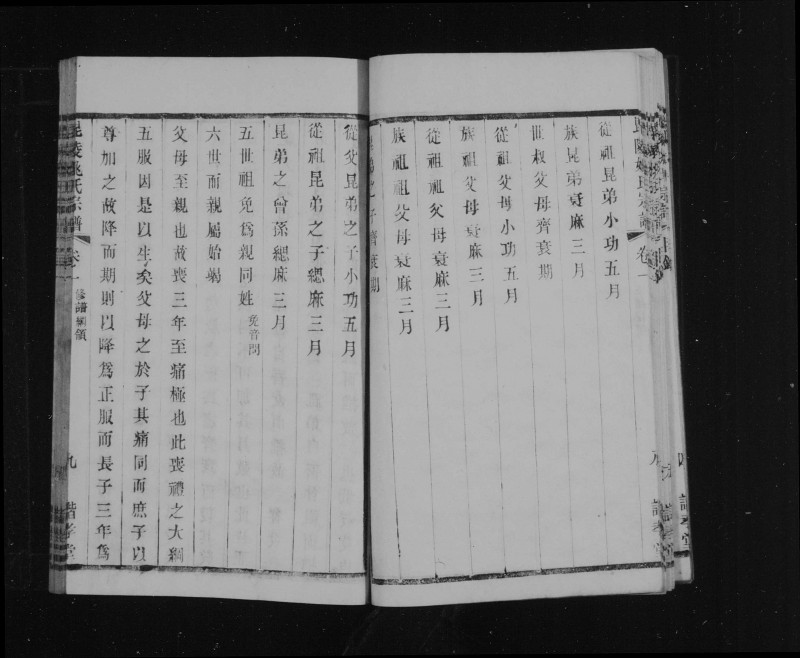 從祖昆弟小功五月
族昆弟衰麻三月
世叔父母齊衰期
從祖父母小功五月
族祖父母衰麻三月
從祖祖父母衰麻三月
族祖祖父母衰麻三月
昆弟之子齊衰期
從父昆弟之子小功五月
從祖昆弟之子緦麻三月
昆弟之曾孫緦麻三月
五世祖免為親同姓 免音問
六世而親屬始竭
父母至親也故喪三年至痛極也此喪禮之大綱
五服因是以生矣父母之於子其痛同而庶子以
尊加之故降而期則以降爲正服而長子三年爲
毘陵姚氏宗譜 卷一 修譜綱領 九 諧孝堂